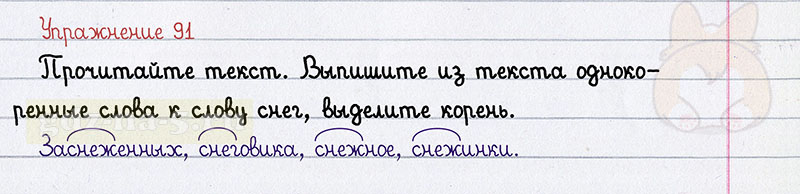 Упражнение 91
Прочитайте текст. Выпишите из текста одноко-
ренные слова к слову снег, выделите корень.
Заснеженных, снеговика, снежное, снежинки.